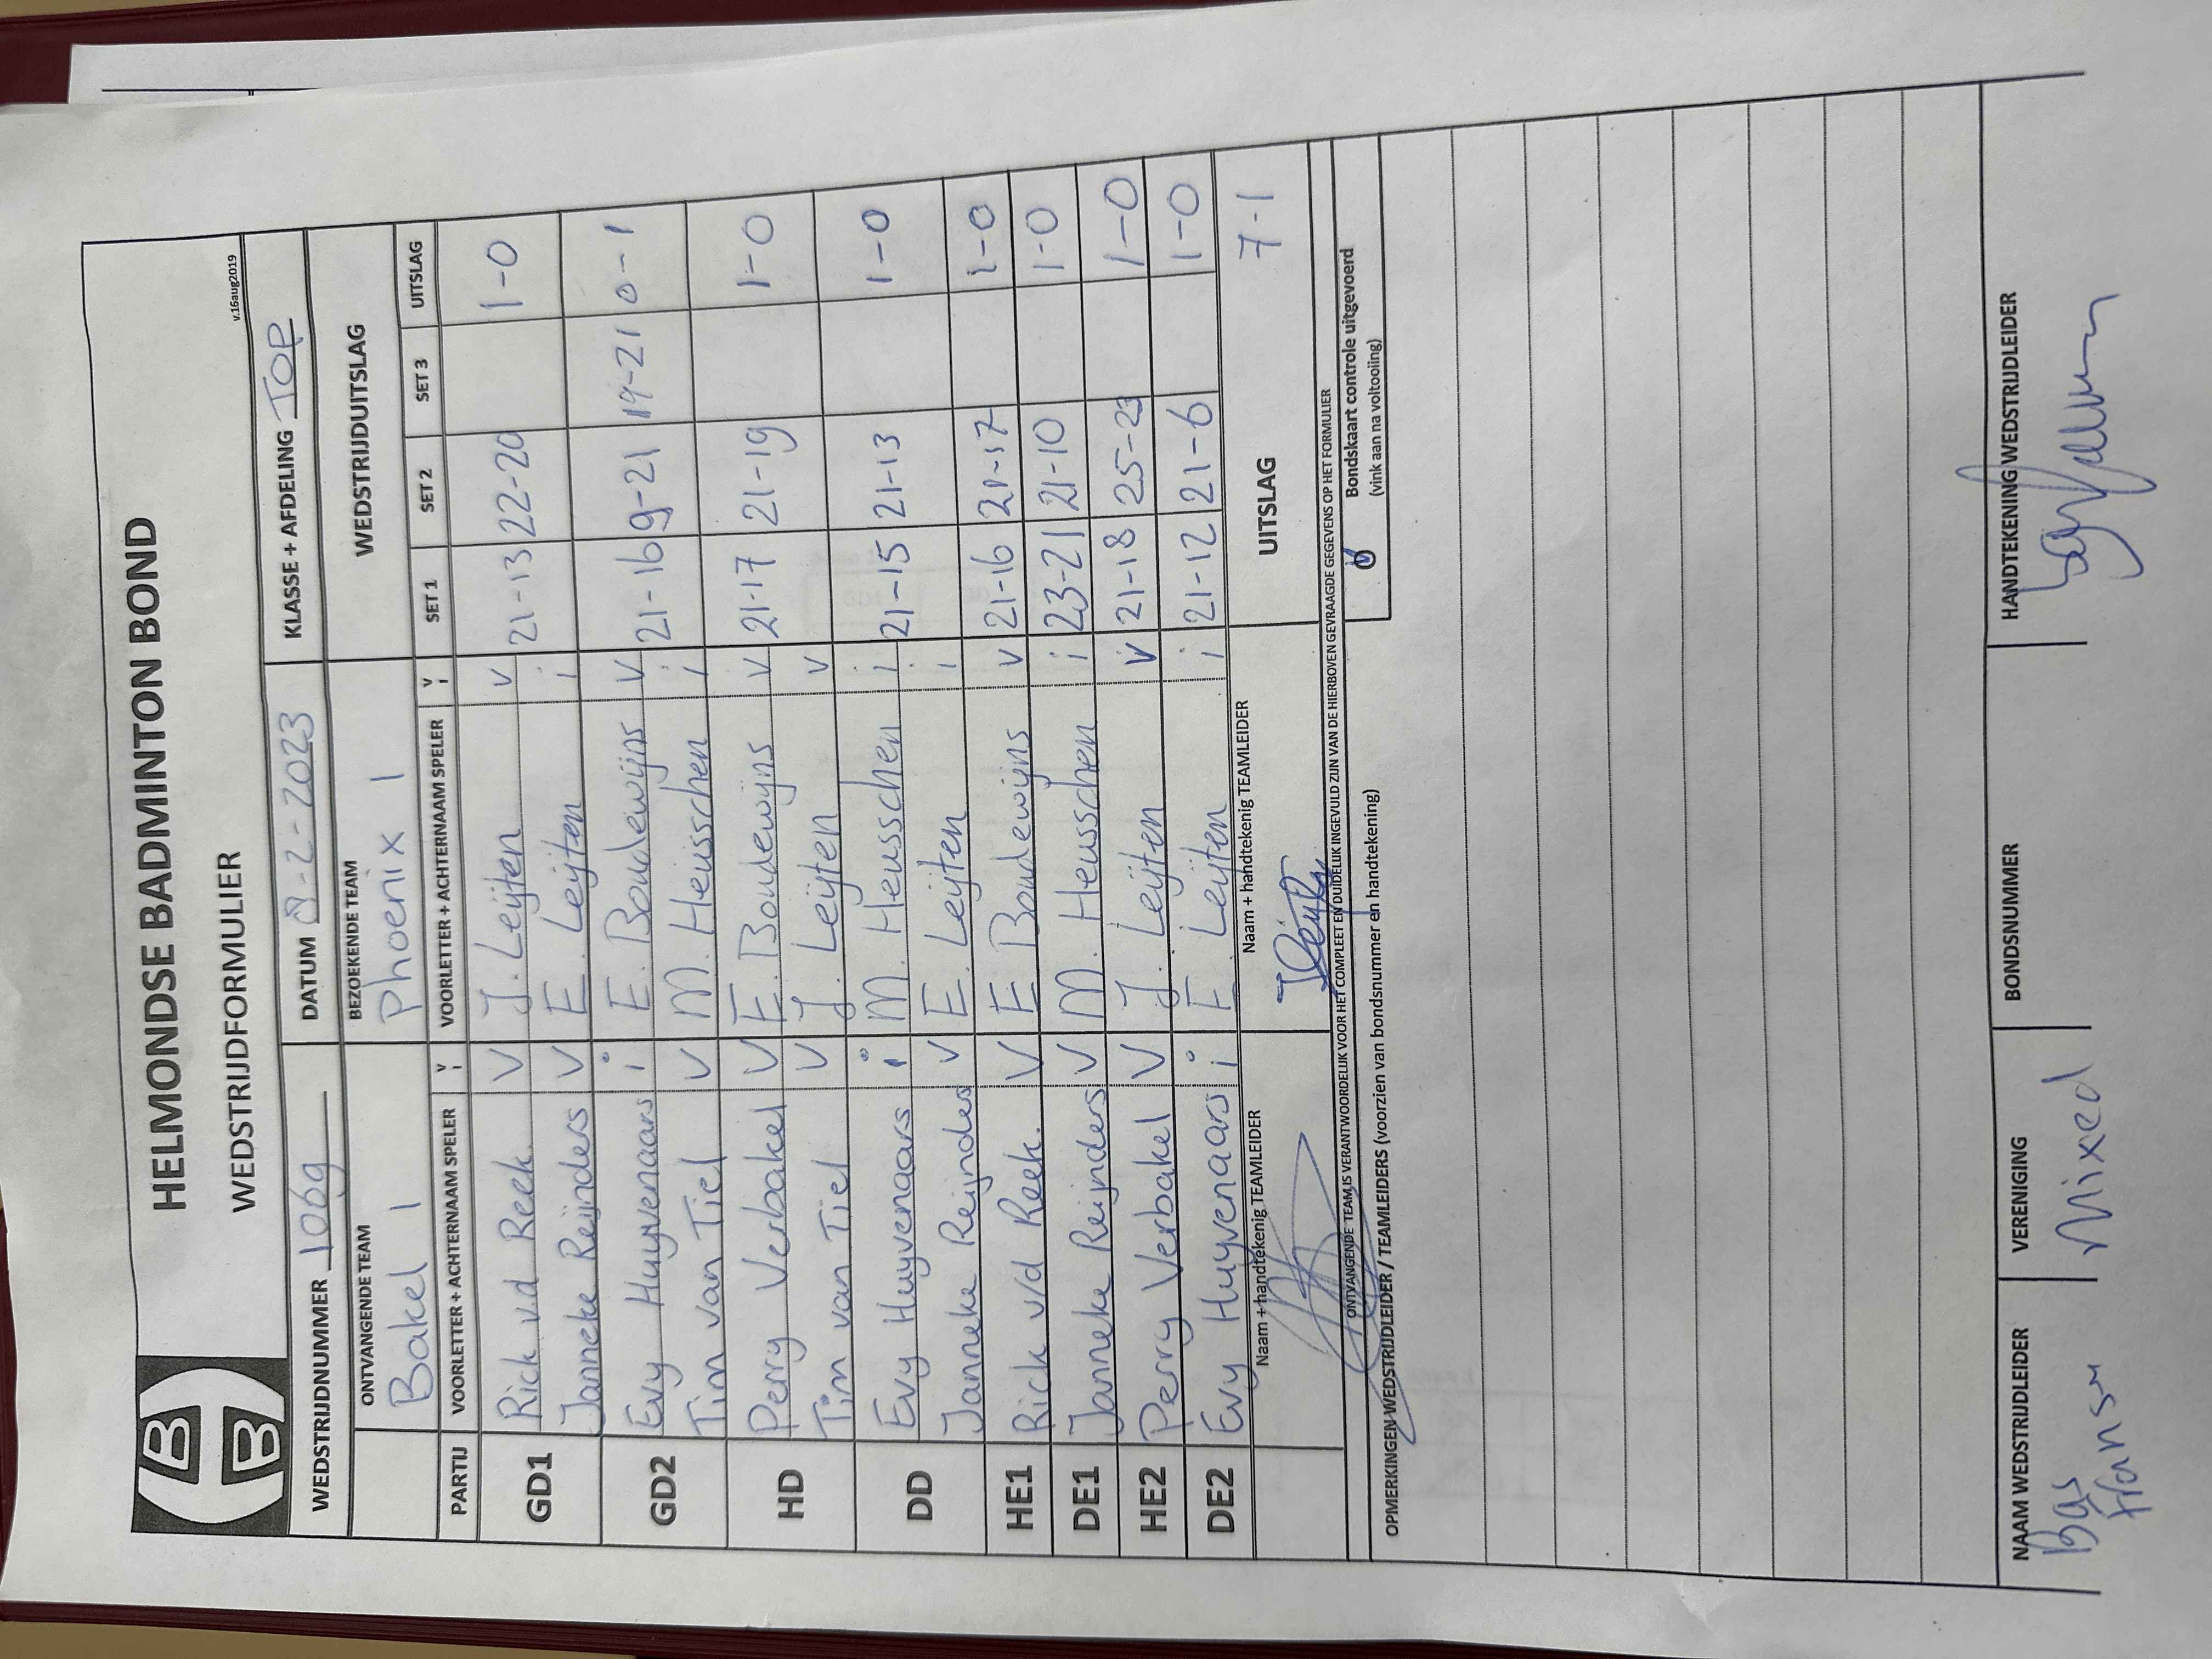 B B
HELMONDSE BADMINTON BOND
WEDSTRIJDFORMULIER
v.16aug2019
WEDSTRIJDNUMMER 1069 DATUM 9-2-2023 KLASSE + AFDELING TOP
ONTVANGENDE TEAM BEZOEKENDE TEAM WEDSTRIJDUITSLAG
Bakel 1 Phoenix 1
PARTIJ VOORLETTER + ACHTERNAAM SPELER V i VOORLETTER + ACHTERNAAM SPELER V i SET 1 SET 2 SET 3 UITSLAG
GD1 Rick v.d Reek V J. Leijten V 21-13 22-20 1-0
Janneke Reijnders V E. Leijten i
GD2 Evy Huijvenaars i E. Boudewijns V 21-16 9-21 19-21 0-1
Tim van Tiel V M. Heusschen i
HD Perry Verbakel V E. Boudewijns V 21-17 21-19 1-0
Tim van Tiel V J. Leijten V
DD Evy Huyvenaars i M. Heusschen i 21-15 21-13 1-0
Janneke Reijnders V E. Leijten i
HE1 Rick v/d Reek. V E. Boudewijns V 21-16 21-17 1-0
DE1 Janneke Reijnders V M. Heusschen i 23-21 21-10 1-0
HE2 Perry Verbakel V J. Leijten V 21-18 25-23 1-0
DE2 Evy Huyvenaars i E. Leijten i 21-12 21-6 1-0
Naam + handtekenig TEAMLEIDER Naam + handtekenig TEAMLEIDER UITSLAG 7-1
ONTVANGENDE TEAM IS VERANTWOORDELIJK VOOR HET COMPLEET EN DUIDELIJK INGEVULD ZIJN VAN DE HIERBOVEN GEVRAAGDE GEGEVENS OP HET FORMULIER
Bondskaart controle uitgevoerd
(vink aan na voltooiing)
OPMERKINGEN WEDSTRIJDLEIDER / TEAMLEIDERS (voorzien van bondsnummer en handtekening)
NAAM WEDSTRIJDLEIDER VERENIGING BONDSNUMMER HANDTEKENING WEDSTRIJDLEIDER
Bas Mixed